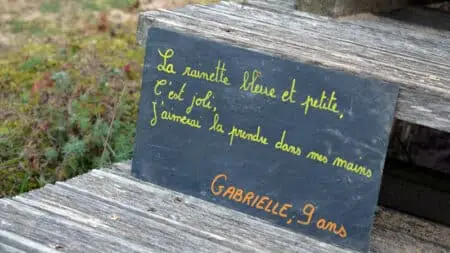 La rainette bleue et petite,
C'est joli,
J'aimerai la prendre dans mes mains
GABRIELLE, 9 ans